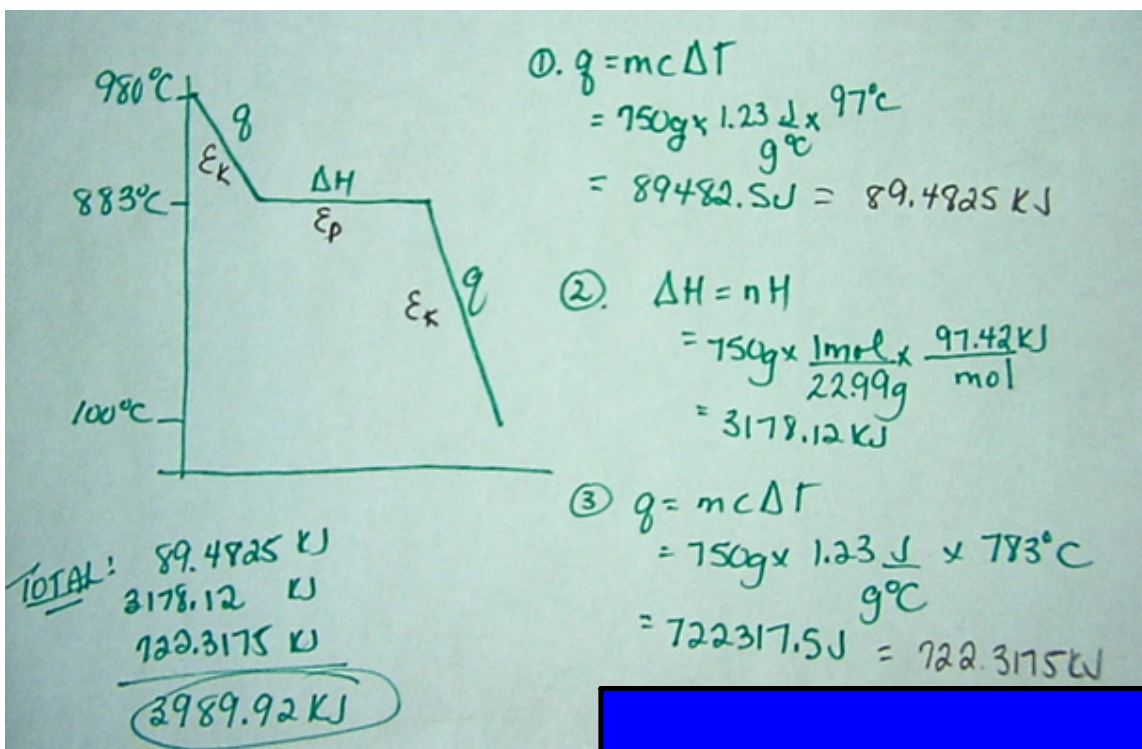 980°C
q
εK
883°C
ΔH
εp
εK
q
100°C
①. q = mcΔT
= 750g x 1.23 J/g°C x 97°C
= 89482.5J = 89.4825 KJ
②. ΔH = nH
= 750g x 1mol/22.99g x 97.42KJ/mol
= 3178.12 KJ
③ q = mcΔT
= 750g x 1.23 J/g°C x 783°C
= 722317.5J = 722.3175KJ
TOTAL: 89.4825 KJ
3178.12 KJ
722.3175 KJ
3989.92 KJ